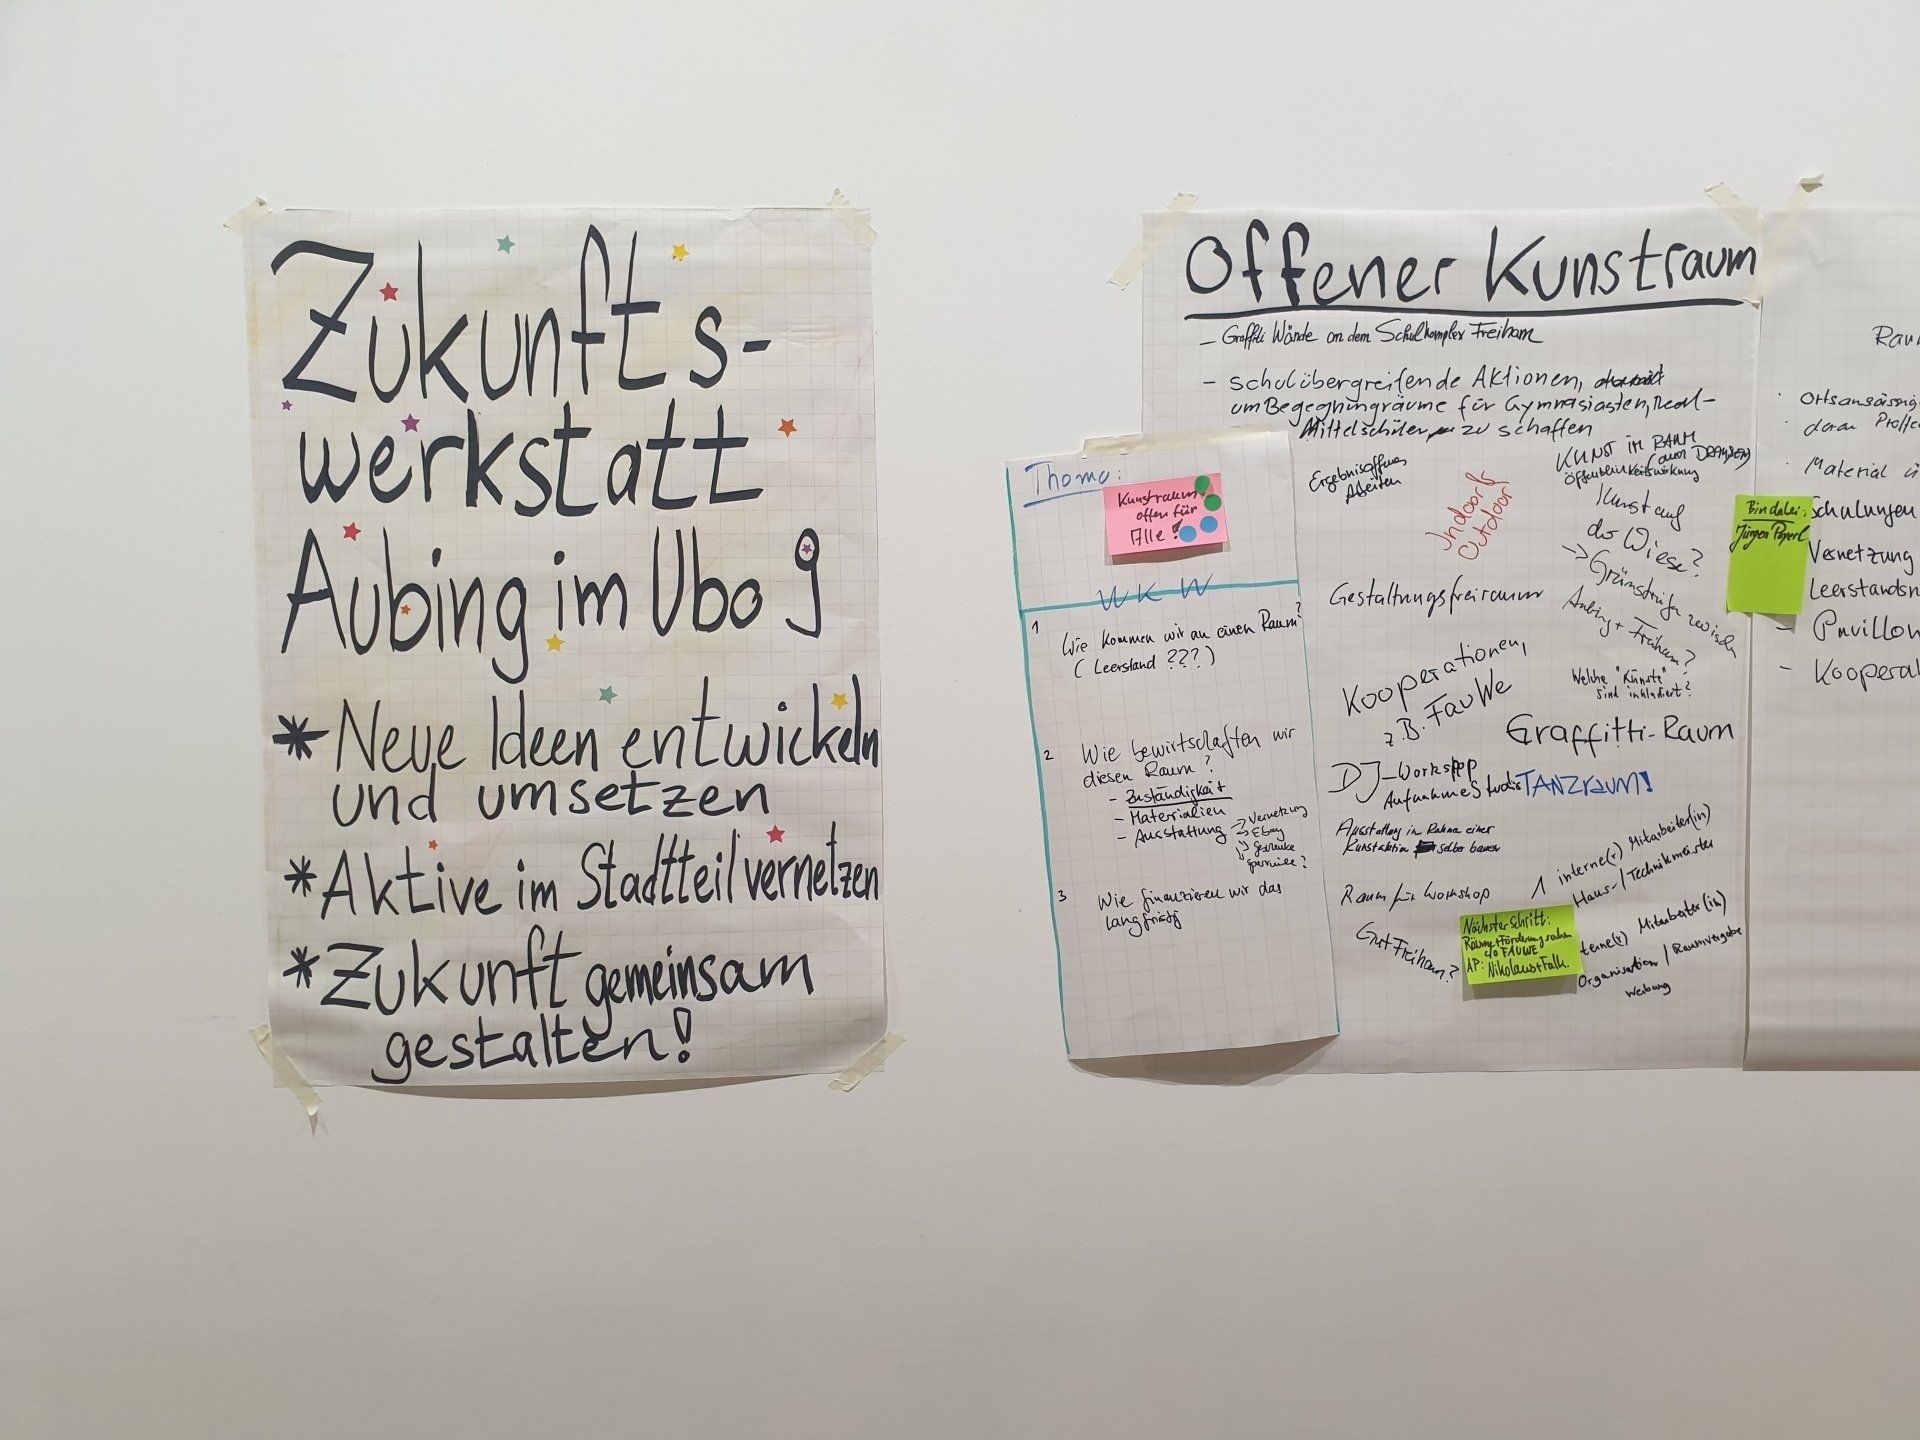 Zukunfts-
werkstatt
Aubing im Ubo 9
* Neue Ideen entwickeln
und umsetzen
* Aktive im Stadtteil vernetzen
* Zukunft gemeinsam
gestalten!
Thema:
Kunstraum
offen für
Alle!
WKW
1 Wie kommen wir an einen Raum?
(Leerstand ???)
2 Wie bewirtschaften wir
diesen Raum?
- Zuständigkeit
- Materialien
- Ausstattung
→ Vernetzung
→ Ebay
3 Wie finanzieren wir das
langfristig
Offener Kunstraum
- Graffiti Wände an dem Schulkomplex Freiham
- schulübergreifende Aktionen,
um Begegnungräume für Gymnasiasten, Real-
Mittelschüler zu schaffen
Ergebnisoffenes
Arbeiten
Indoor &
Outdoor
KUNST IM RAUM
Öffentlichkeitswirkung
Kunst auf
der Wiese?
→ Grünstreifen zwischen
Aubing + Freiham?
Gestaltungsfreiraum
Kooperationen,
z.B. FauWe
Welche "Künste"
sind inkludiert?
Graffitti-Raum
DJ-Workshop
Aufnahmestudio
TANZraum!
Ausstattung im Rahmen einer
Kunstaktion selber bauen
Raum für Workshop
1 interne(r) Mitarbeiter(in)
Haus-/Technikmeister
Gut Freiham?
Nächster Schritt:
Räume + Förderung suchen
40 FAUWE
AP: Nikolaus + Falk.
terne(r) Mitarbeiter(in)
Organisation / Raumvergabe
Werbung
Bin dabei:
Jürgen
Rau
Ortsansässig
daran
Material
Schulungen
Vernetzung
Leerstandsn
- Pavillon
- Kooperat